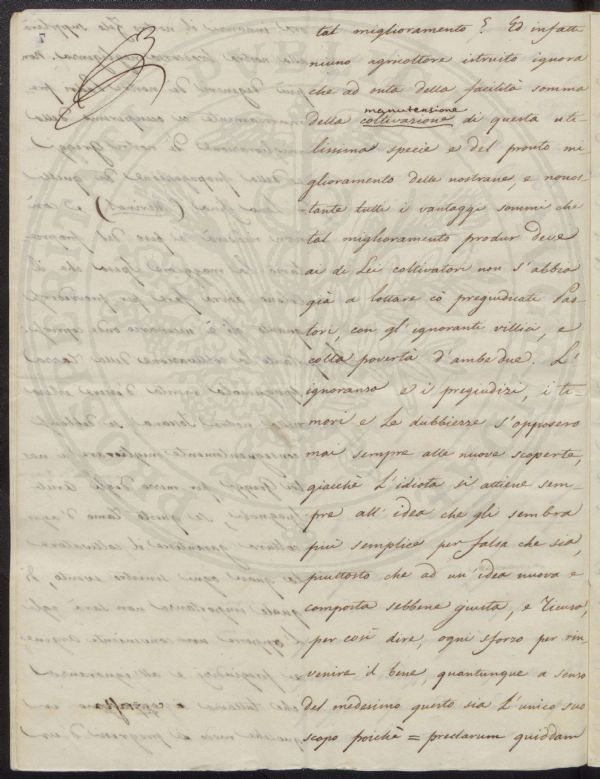 tal miglioramento? Ed infatti
niuno agricoltore istruito ignora
che ad onta della facilità somma
manutensione
della coltivazione di questa uti-
lissima specie e del pronto mi-
glioramento delle nostrane, e nonos-
tante tutti i vantaggi sommi che
tal miglioramento produr deve
ai di Lei coltivatori non s'abbia
già a lottare cò pregiudicati Pas-
tori, con gl'ignoranti villici, e
colla povertà d'ambedue. L'
ignoranza e i pregiudizi, i ti-
mori e le dubbiezze s'opposero
mai sempre alle nuove scoperte,
giacchè l'idiota si attiene sem-
pre all'idea che gli sembra
più semplice per falsa che sia,
piuttosto che ad un'idea nuova e
composta sebbene giusta, e ricusa,
per così dire, ogni sforzo per rin-
venire il bene, quantunque a senso
del medesimo questo sia l'unico suo
scopo poichè = preclarum quiddam